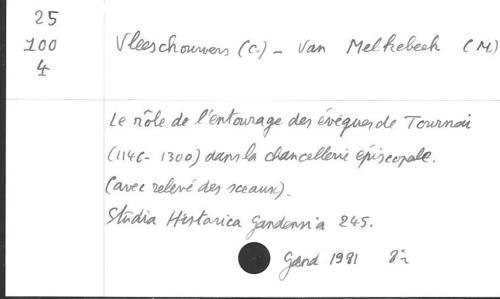 25
100
4
Vleeschouwers (C.) - Van Melkebeek (M.)
Le rôle de l'entourage des évêques de Tournai
(1146-1300) dans la chancellerie épiscopale.
(avec relevé des sceaux).
Studia Historica Gandensia 245.
Gand 1981 8°